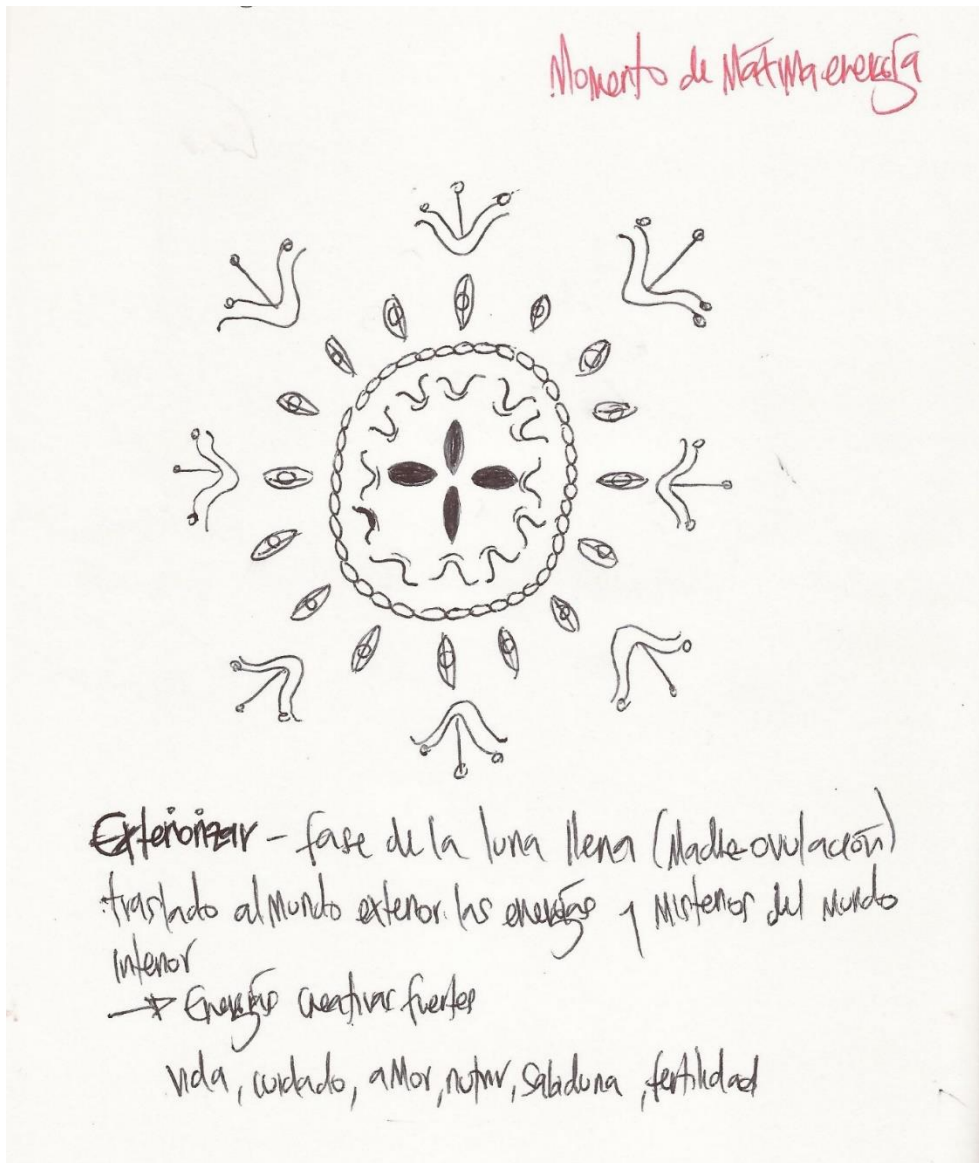 Momento de Máxima energía
Exteriorizar - fase de la luna llena (Madre-ovulación)
traslado al mundo exterior las energías y Misterios del Mundo
Interior
→ Energías creativas fuertes
vida, cuidado, amor, nutrir, Sabiduria, fertilidad